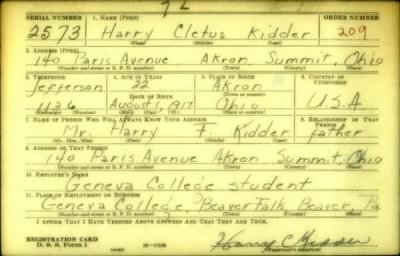 SERIAL NUMBER 1. NAME (Print) ORDER NUMBER
2573 Harry Cletus Kidder 209
(First) (Middle) (Last)
2. ADDRESS (Print)
140 Paris Avenue, Akron, Summit, Ohio
(Number and street or R. F. D. number) (Town) (County) (State)
3. TELEPHONE 4. AGE IN YEARS 5. PLACE OF BIRTH 6. COUNTRY OF CITIZENSHIP
Jefferson 22 Akron
DATE OF BIRTH (Town or county)
U36 August 1, 1917 Ohio U.S.A.
7. NAME OF PERSON WHO WILL ALWAYS KNOW YOUR ADDRESS 8. RELATIONSHIP OF THAT PERSON
Mr. Harry F. Kidder father
9. ADDRESS OF THAT PERSON
140 Paris Avenue Akron, Summit, Ohio
(Number and street or R. F. D. number) (Town) (County) (State)
10. EMPLOYER'S NAME
Geneva College student
11. PLACE OF EMPLOYMENT OR BUSINESS
Geneva College, Beaver Falls Beaver, Pa
(Number and street or R. F. D. number) (Town) (County) (State)
I AFFIRM THAT I HAVE VERIFIED ABOVE ANSWERS AND THAT THEY ARE TRUE.
REGISTRATION CARD
D. S. S. FORM 1 Harry C Kidder
(over) (Registrant's signature)